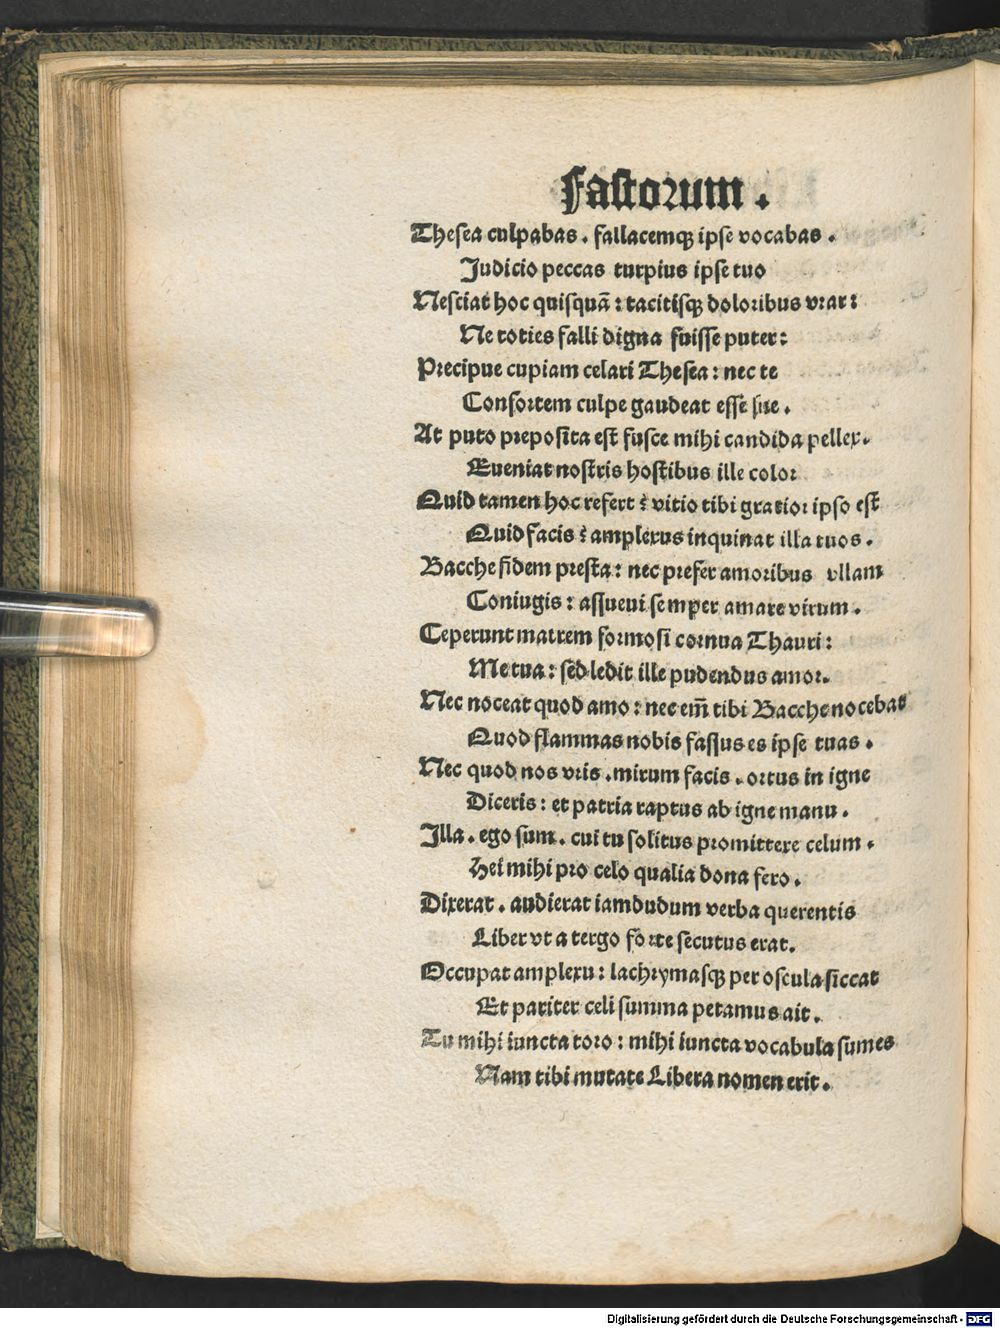 Fastorum.
Thesea culpabas. fallacemqʒ ipse vocabas.
Judicio peccas turpius ipse tuo
Nesciat hoc quisquã: tacitisqʒ doloribus vrar:
Ne toties falli digna fuisse puter:
Precipue cupiam celari Thesea: nec te
Consortem culpe gaudeat esse sue.
At puto preposita est fusce mihi candida pellex.
Eueniat nostris hostibus ille color
Quid tamen hoc refert? vitio tibi gratior ipso est
Quid facis? amplexus inquinat illa tuos.
Bacche fidem presta: nec prefer amoribus vllam
Coniugis: assueui semper amare virum.
Ceperunt matrem formosi cornua Thauri:
Me tua: sed ledit ille pudendus amor.
Nec noceat quod amo: nec em̃ tibi Bacche nocebat
Quod flammas nobis fassus es ipse tuas.
Nec quod nos vris. mirum facis. ortus in igne
Diceris: et patria raptus ab igne manu.
Illa. ego sum. cui tu solitus promittere celum.
Hei mihi pro celo qualia dona fero.
Dixerat. audierat iamdudum verba querentis
Liber vt a tergo forte secutus erat.
Occupat amplexu: lachrymasqʒ per oscula siccat
Et pariter celi summa petamus ait.
Tu mihi iuncta toro: mihi iuncta vocabula sumes
Nam tibi mutate Libera nomen erit.
Digitalisierung gefördert durch die Deutsche Forschungsgemeinschaft - DFG